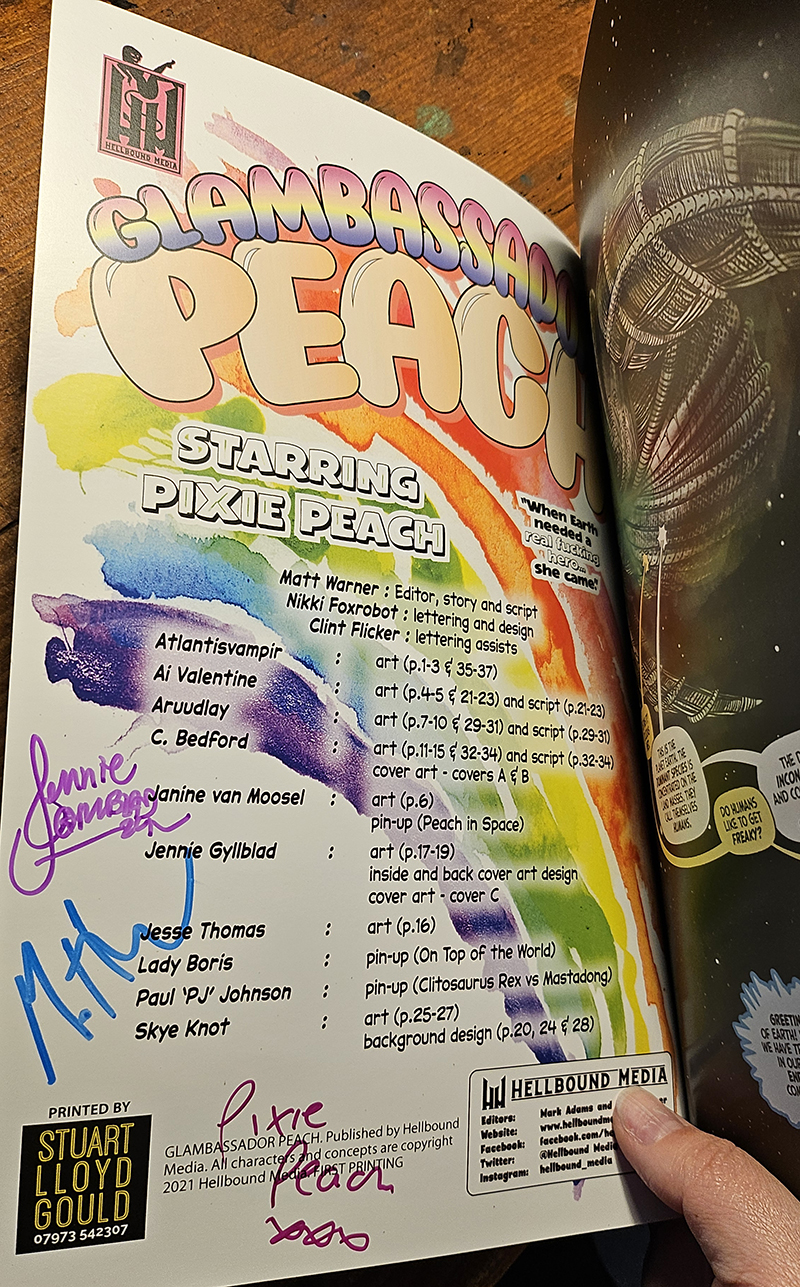 HELLBOUND MEDIA
GLAMBASSADO
PEACH
STARRING
PIXIE PEACH
"When Earth
needed a
real fucking
hero...
she came."
Matt Warner : Editor, story and script
Nikki Foxrobot : lettering and design
Clint Flicker : lettering assists
Atlantisvampir : art (p.1-3 & 35-37)
Ai Valentine : art (p.4-5 & 21-23) and script (p.21-23)
Aruudlay : art (p.7-10 & 29-31) and script (p.29-31)
C. Bedford : art (p.11-15 & 32-34) and script (p.32-34)
cover art - covers A & B
Janine van Moosel : art (p.6)
pin-up (Peach in Space)
Jennie Gyllblad : art (p.17-19)
inside and back cover art design
cover art - cover C
Jesse Thomas : art (p.16)
Lady Boris : pin-up (On Top of the World)
Paul 'PJ' Johnson : pin-up (Clitosaurus Rex vs Mastadong)
Skye Knot : art (p.25-27)
background design (p.20, 24 & 28)
Jennie
PRINTED BY
STUART
LLOYD
GOULD
07973 542307
GLAMBASSADOR PEACH. Published by Hellbound
Media. All characters and concepts are copyright
2021 Hellbound Media. FIRST PRINTING
Pixie
Peach
xxxx
HELLBOUND MEDIA
Editors: Mark Adams and
Website: www.hellboundme
Facebook: facebook.com/he
Twitter: @Hellbound Medi
Instagram: hellbound_media
THIS IS THE
PLANET EARTH, THE
DOMINANT SPECIES IS
CONCENTRATED ON THE
LAND MASSES. THEY
CALL THEMSELVES
HUMANS.
DO HUMANS
LIKE TO GET
FREAKY?
THE D
INCON
AND CO
GREETIN
OF EARTH!
WE HAVE TR
IN OUR
EN
COM